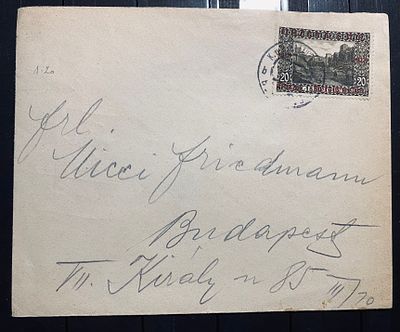 1.20
20 20
Frl.
Micci Friedmann
Budapest
VII. Király u 85 III/10